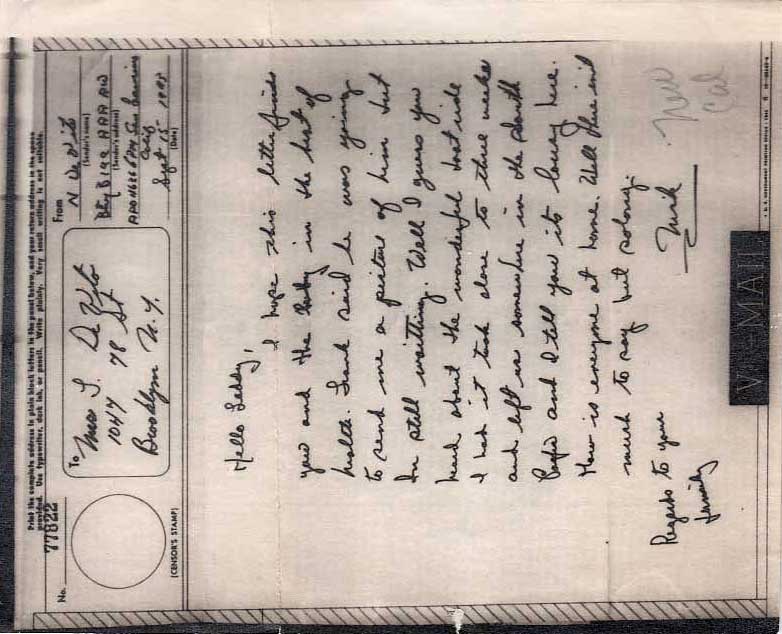 Print the complete address in plain block letters in the panel below, and your return address in the space
provided. Use typewriter, dark ink, or pencil. Write plainly. Very small writing is not suitable.
No. 77822
(CENSOR'S STAMP)
To
Mrs L De Vito
1047 78 St
Brooklyn N.Y.
From
N De Vito
(Sender's name)
Bty B 199 AAA AW
(Sender's address)
APO
Calif
Sept 15 1945
(Date)
Hello Leddy,
I hope this letter finds
you and the baby in the best of
health. Frank said he was going
to send me a picture of him but
Im still waitting. Well I guess you
heard about the wonderful boat ride
I had it took alone to three weeks
and left us somewhere in the South
Pacific and I tell you its lousy here.
How is everyone at home. Well there isnt
much to say but solong.
Regards to your
family
Nick
New
Cal
V-MAIL